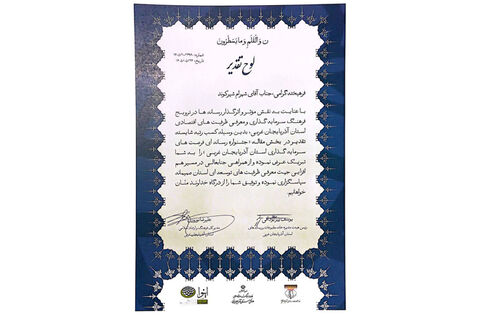 ن وَالْقَلَمِ وَمَا يَسْطُرُونَ
لوح تقدیر
فرهیخته گرامی، جناب آقای شهرام شیرکوند
با عنایت به نقش موثر و اثرگذار رسانه ها در ترویج
فرهنگ سرمایه گذاری و معرفی ظرفیت های اقتصادی
استان آذربایجان غربی؛ بدین وسیله کسب رتبه شایسته
تقدیر در بخش مقاله «جشنواره رسانه ای فرصت های
سرمایه گذاری استان آذربایجان غربی» را به شما
تبریک عرض نموده و از همراهی جنابعالی در مسیر هم
افزایی جهت معرفی ظرفیت های توسعه ای استان صمیمانه
سپاسگزاری نموده و توفیق شما را از درگاه خداوند منان
خواهانیم.
استان آذربایجان غربی